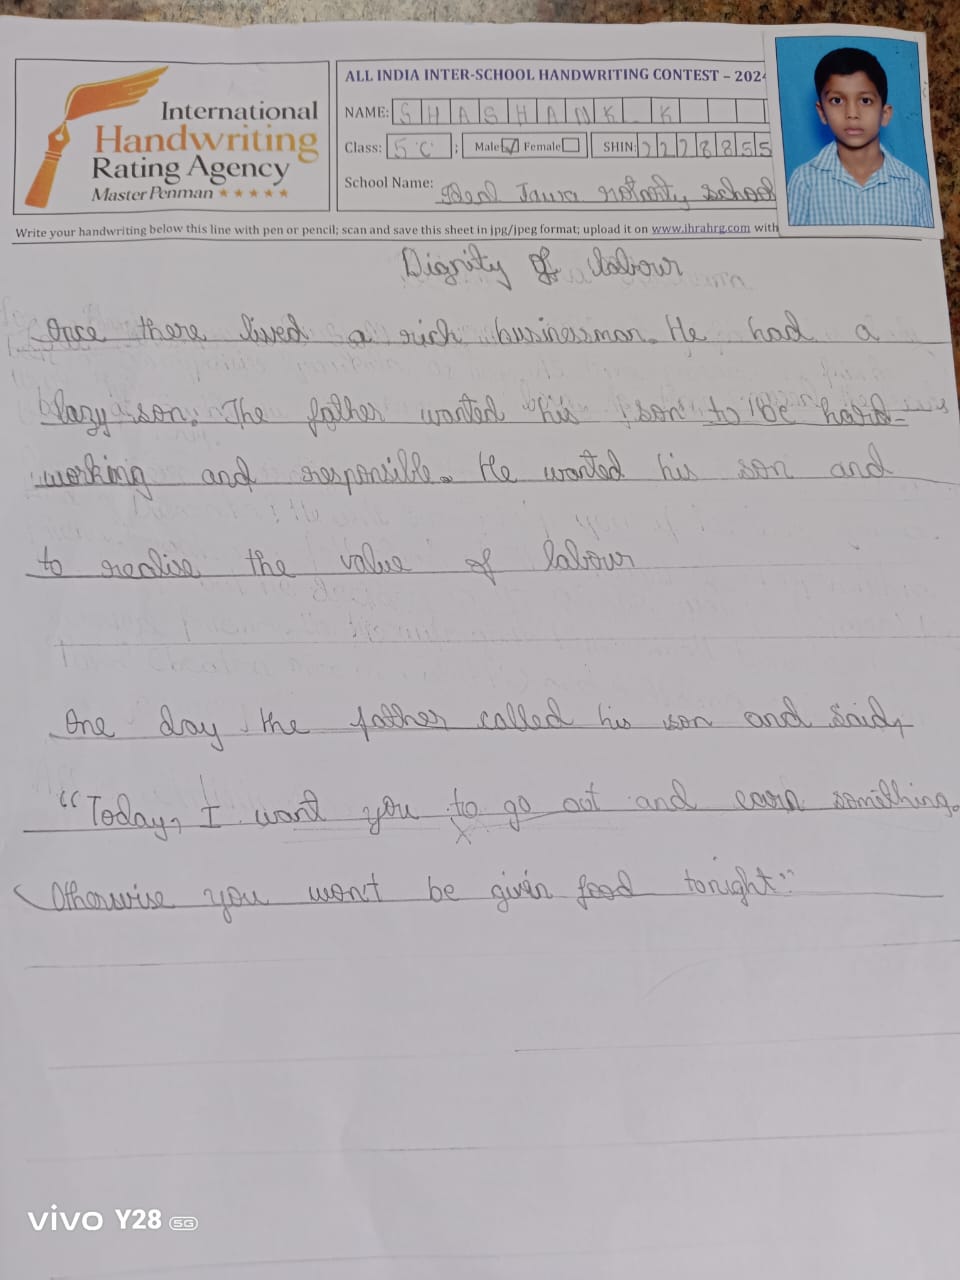 International
Handwriting
Rating Agency
Master Penman ★★★★★
ALL INDIA INTER-SCHOOL HANDWRITING CONTEST – 2024
NAME: SHASHANK K
Class: 5 C : Male ✓ Female SHIN: 2228855
School Name: Ideal Jawa school
Write your handwriting below this line with pen or pencil; scan and save this sheet in jpg/jpeg format; upload it on www.ihrahrg.com with
Dignity of labour
Once there lived a rich bussinessman. He had a
lazy son. The father wanted his son to be hard-
working and responsible. He wanted his son and
to realise the value of labour
One day the father called his son and said,
“Today, I want you to go out and earn something.
Otherwise you won't be givin food tonight"
vivo Y28 5G